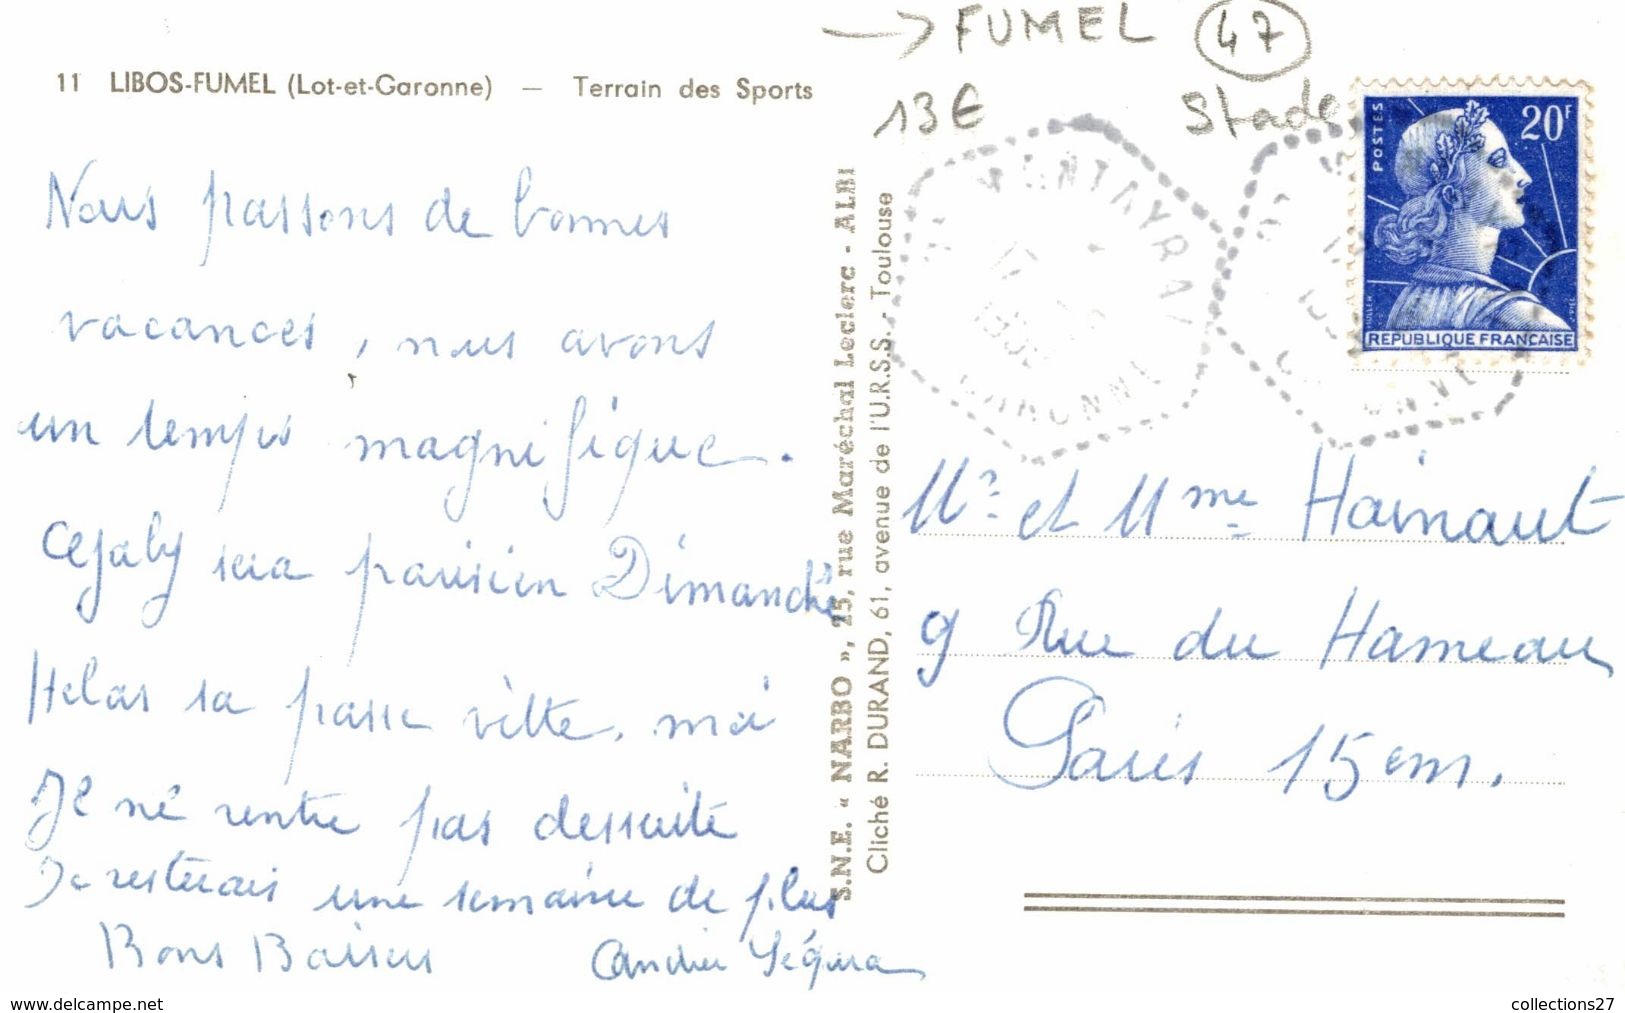 → FUMEL 47
11 LIBOS-FUMEL (Lot-et-Garonne) — Terrain des Sports
13€ Stade
POSTES 20F
REPUBLIQUE FRANÇAISE
MONTAYRAL
GARONNE
Nous passons de bonnes
vacances, nous avons
un temps magnifique.
sera parisien Dimanche
Helas sa passe vitte, moi
Je ne rentre pas dessuite
Je resterais une semaine de plus
Bons Baisers Ségura
S.N.E. « NARBO », 15, rue Maréchal Leclerc - ALBI
Cliché R. DURAND, 61, avenue de l'U.R.S.S. - Toulouse
Mr et Mme Hainaut
9 Rue du Hameau
Paris 15em.
www.delcampe.net
collections27